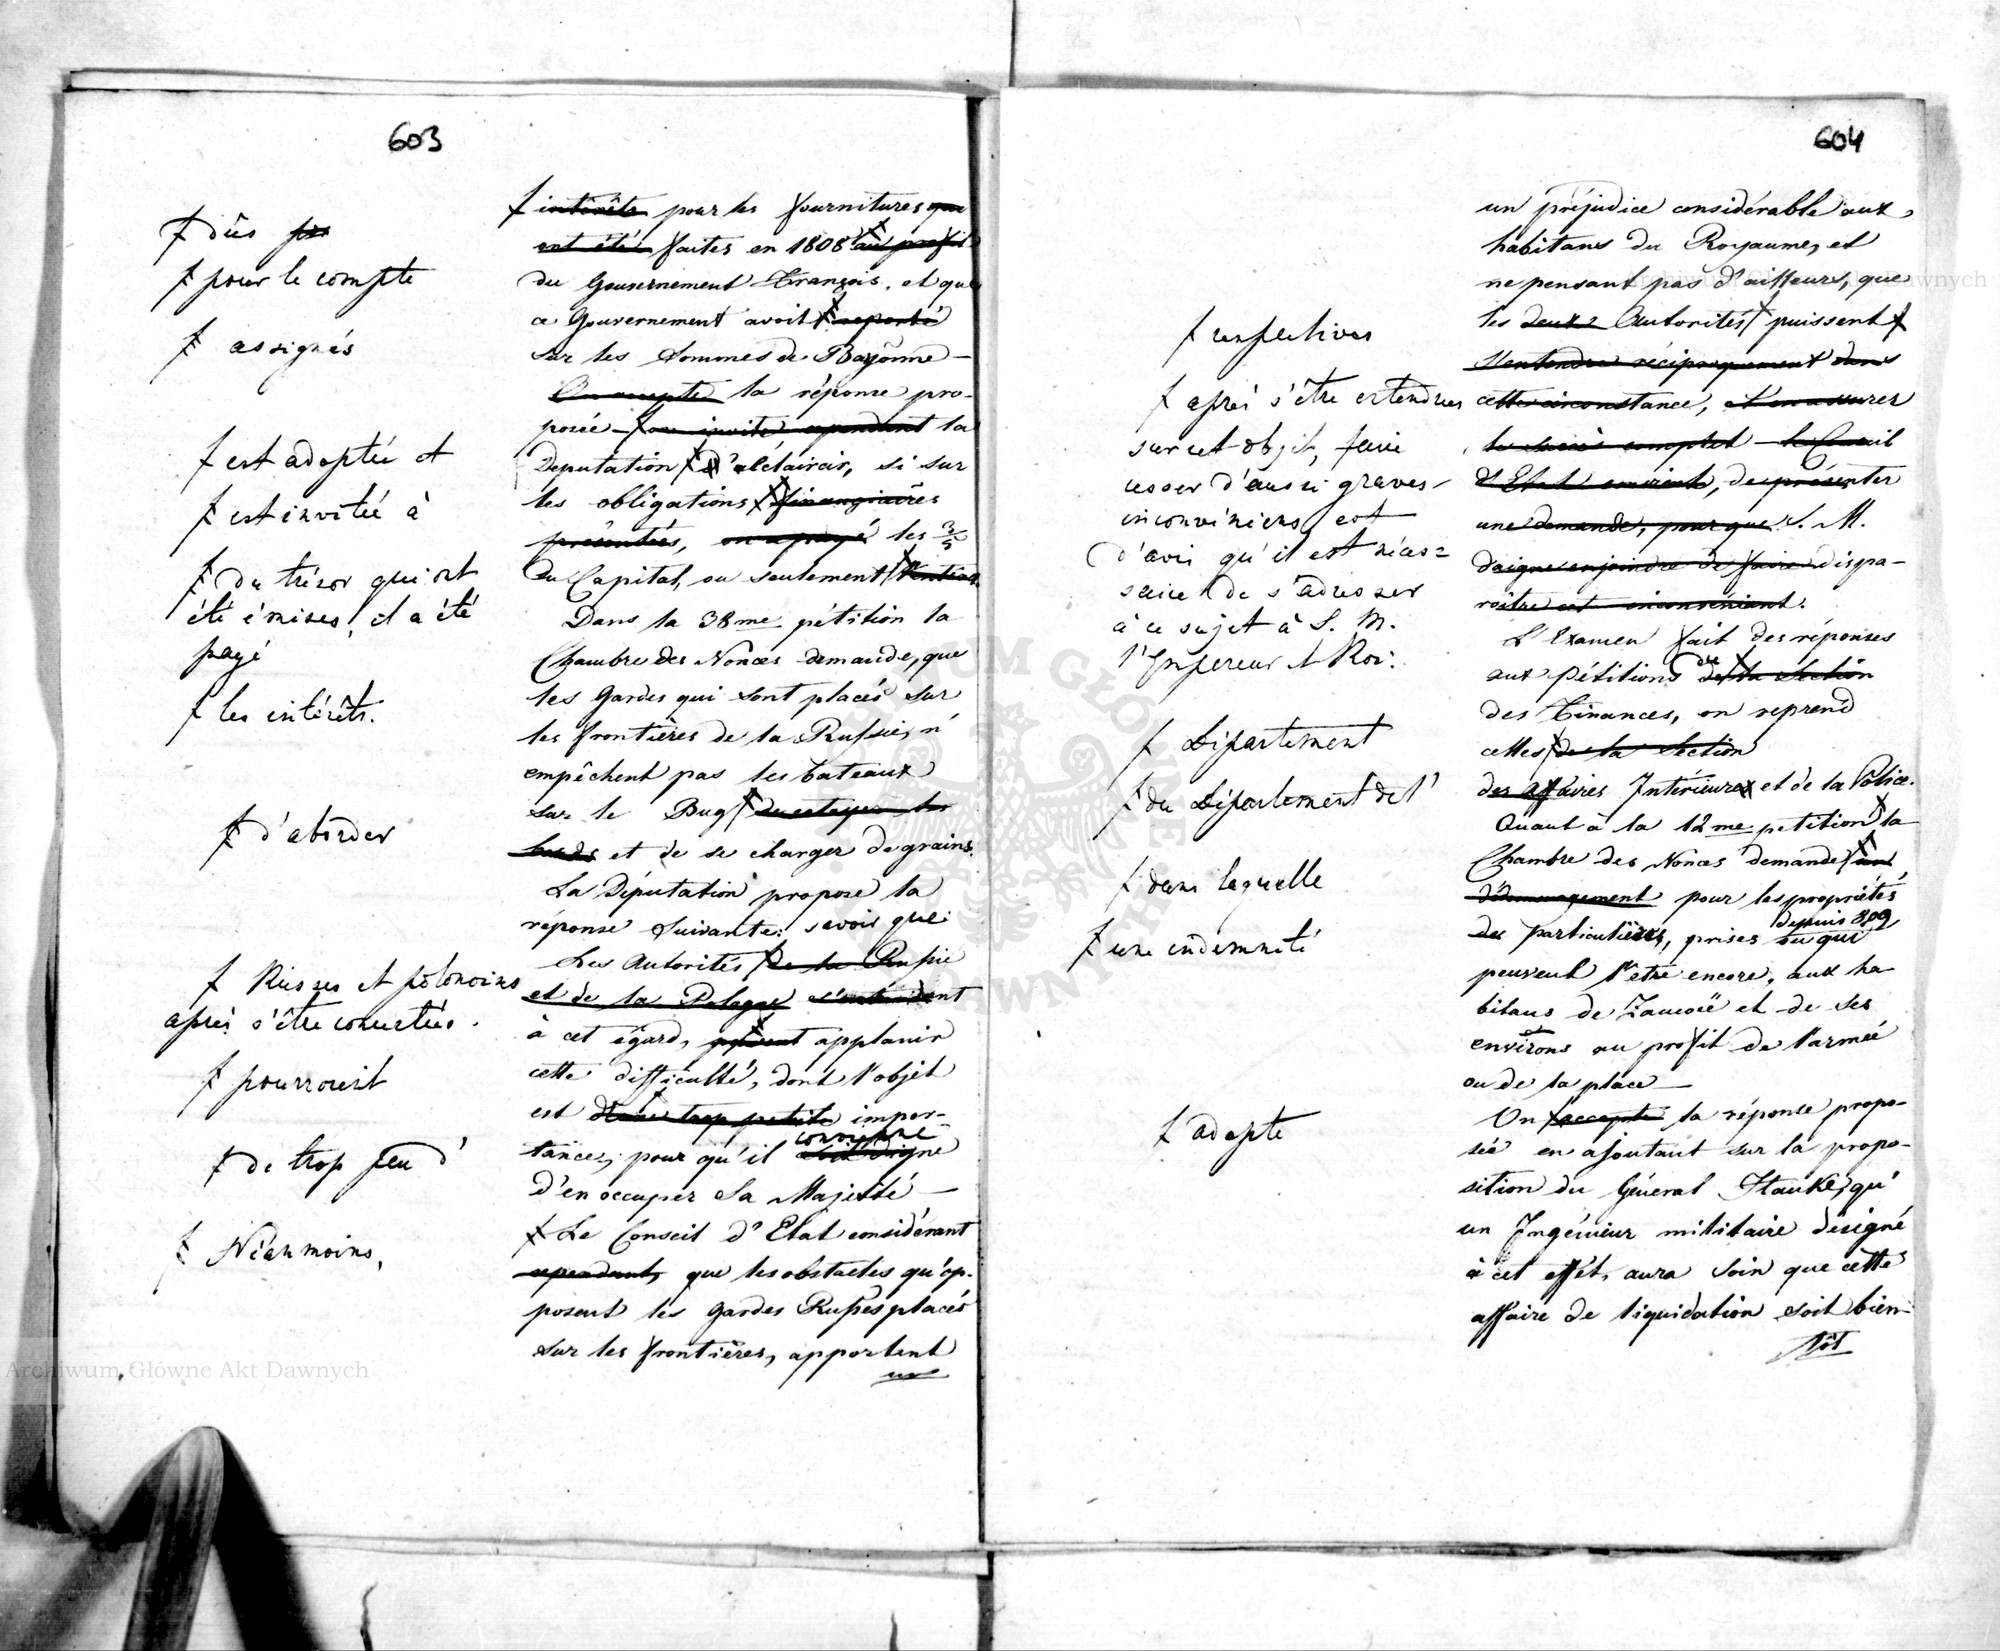 603
ƒ dûs par
ƒ pour le compte
ƒ assignés
ƒ est adoptée et
ƒ est invitée à
ƒ du trésor qui ont
été émises, il a été
payé
ƒ les intérêts.
ƒ d'aborder
ƒ Russes et polonoises
après s'être concertées.
ƒ pourroient
ƒ de trop peu d'
ƒ Néanmoins,
ƒ intérêts pour les fournitures que
ont été faites en 1808 au profit
du Gouvernement François, et que
ce Gouvernement avoit ƒ reporté
sur les Sommes de Bayonne —
On accepte la réponse pro-
posée — ƒ on invite cependant la
Députation ƒ d'éclaircir, si sur
les obligations ƒ
présentées, on a payé les 3/5
du Capital, ou seulement ƒ
Dans la 38me pétition la
Chambre des Nonces demande, que
les Gardes qui sont placés sur
les frontières de la Russie, n'
empêchent pas les bateaux
sur le Bug ƒ de cotoyer les
bords et de se charger de grains.
La Députation propose la
réponse suivante: savoir que:
Les Autorités ƒ de la Russie
et de la Pologne s'entendent
à cet égard, applanir
cette difficulté, dont l'objet
est d'une trop petite impor-
tance, pour qu'il soit digne convienne
d'en occuper Sa Majesté —
ƒ Le Conseil d'Etat considérant
cependant, que les obstacles qu'op-
posent les Gardes Russes placés
sur les frontières, apportent
un
604
ƒ respectives
ƒ après s'être entendues
sur cet objet, faire
cesser d'aussi graves
inconvéniens est
d'avis qu'il est néces-
saire de s'adresser
à ce sujet à S. M.
l'Empereur et Roi.
ƒ Département
ƒ du Département de l'
ƒ dans laquelle
ƒ une indemnité
ƒ adopte
un préjudice considérable aux
habitans du Royaume, et
ne pensant pas d'ailleurs, que
les deux Autorités ƒ puissent ƒ
s'entendre réciproquement dans
cette circonstance, et en assurer
le succès complet — le Conseil
d'Etat de présenter
une demande, pour que S. M.
daigne enjoindre de faire dispa-
roître cet inconvénient.
L'Examen fait des réponses
aux pétitions du de la Section
des Finances, on reprend
celles ƒ de la Section
des affaires Intérieures et de la Police.
Quant à la 12me petition ƒ la
Chambre des Nonces demande ƒ un
dédommagement pour les propriétés
des particuliers, prises depuis 809 ou qui
peuvent l'etre encore, aux ha-
bitans de Zamość et de ses
environs au profit de l'armée
ou de la place —
On ƒ accepte la réponse propo-
sée en ajoutant sur la propo-
sition du Général Hauke, qu'
un Ingénieur militaire désigné
à cet effet, aura soin que cette
affaire de liquidation soit bien-
tôt
Archiwum Główne Akt Dawnych